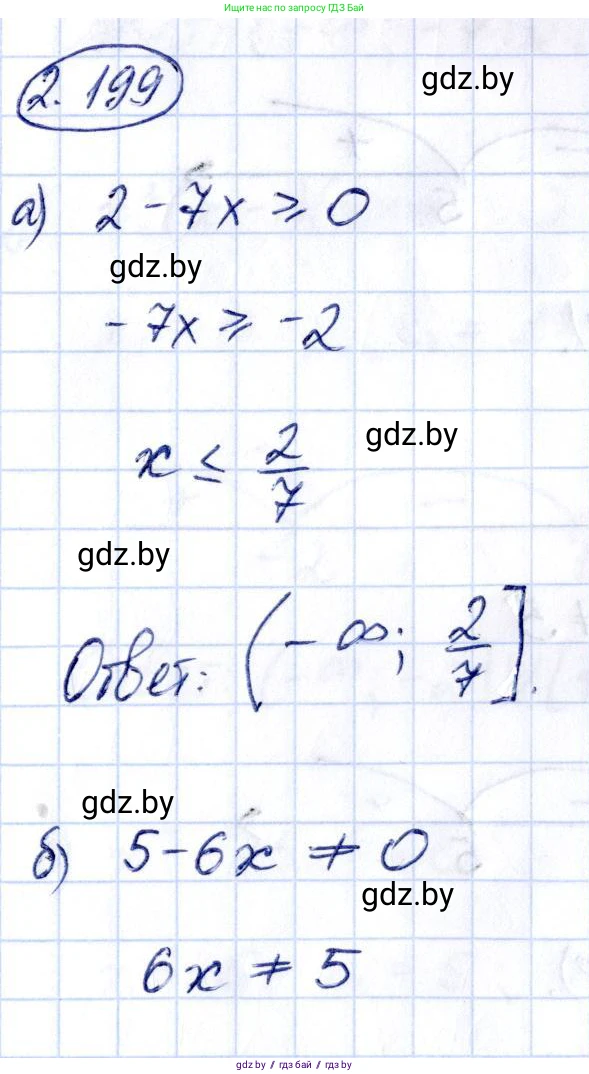 Ищите нас по запросу ГДЗ Бай
2.199
gdz.by
а) 2 - 7x ≥ 0
gdz.by
- 7x ≥ -2
gdz.by
x ≤ 2/7
gdz.by
Ответ: (- ∞; 2/7].
gdz.by
б) 5 - 6x ≠ 0
gdz.by
6x ≠ 5
gdz.by / гдз бай / гдз.бу